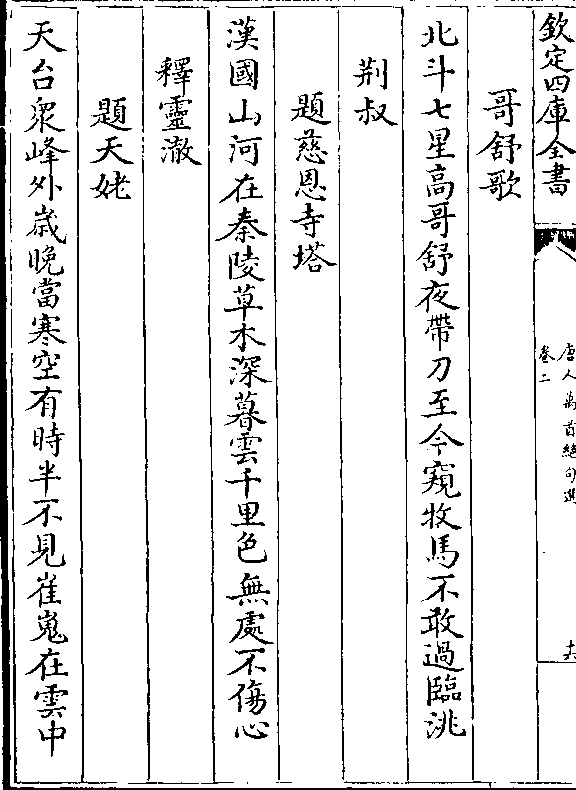 欽定四庫全書
唐人萬首絶句選
卷二
十六
哥舒歌
北斗七星高哥舒夜帶刀至今窺牧馬不敢過臨洮
荆叔
題慈恩寺塔
漢國山河在秦陵草木深暮雲千里色無處不傷心
釋靈澈
題天姥
天台衆峰外歳晚當寒空有時半不見崔嵬在雲中